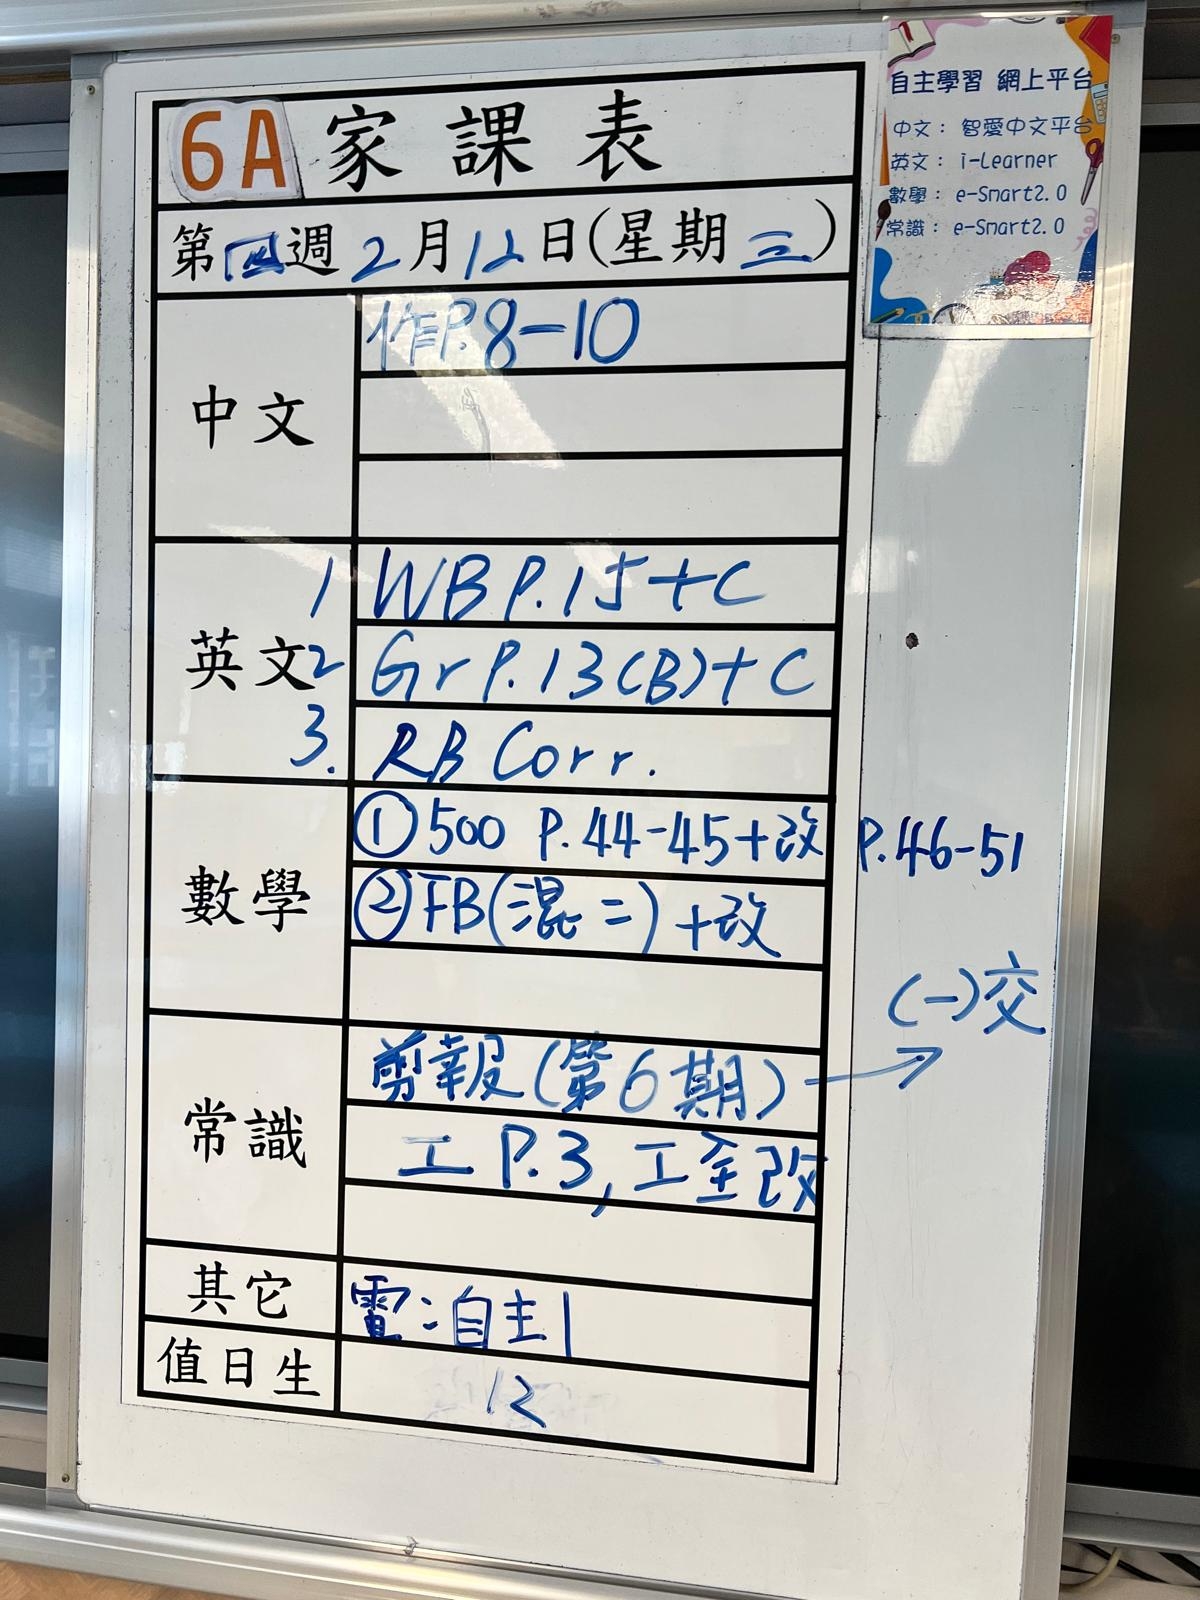 6A 家課表
第四週 2月12日(星期三)
中文
作P.8-10
英文
1 WB P.15+C
2 Gr P.13(B)+C
3. RB Corr.
數學
① 500 P.44-45+改 P.46-51
② FB(混二)+改
常識
剪報(第6期) → (一)交
工 P.3, 工全改
其它
電:自主1
值日生
12
自主學習 網上平台
中文: 智愛中文平台
英文: i-Learner
數學: e-Smart2.0
常識: e-Smart2.0